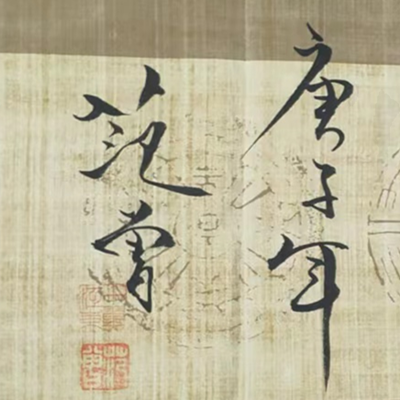 庚子年
范曾